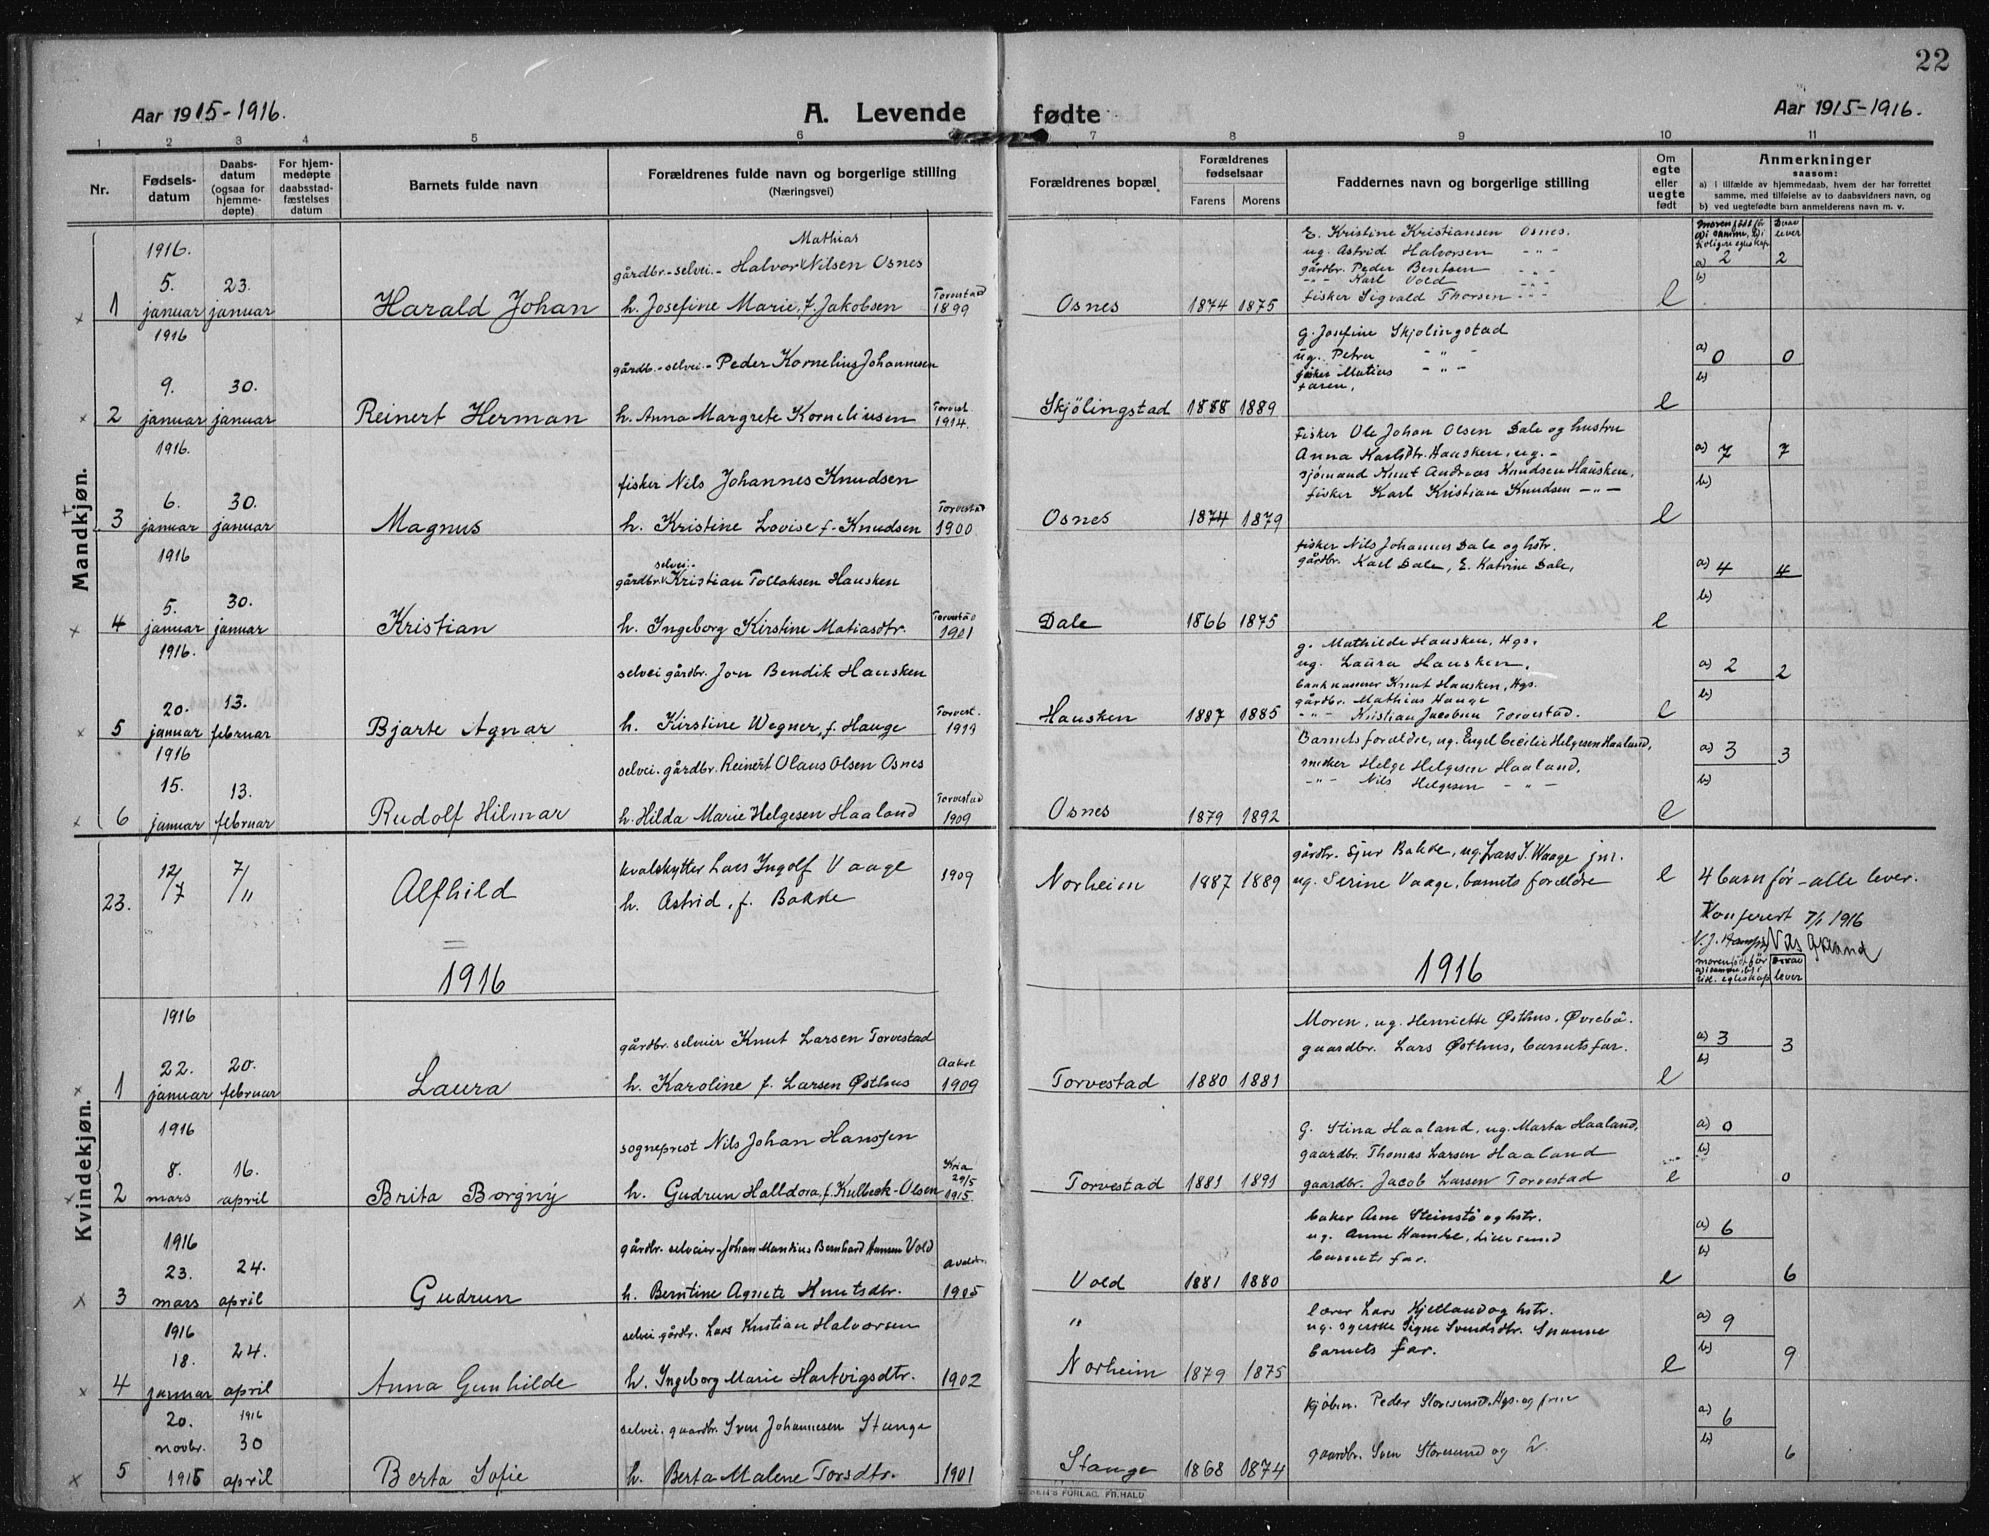 22
Aar 1915-1916.
A. Levende fødte
Aar 1915-1916.
1 2 3 4 5 6 7 8 9 10 11
Nr.
Fødsels-datum
Daabs-datum (ogsaa for hjemme-døpte)
For hjem-medøpte daabsstad-fæstelses datum
Barnets fulde navn
Forældrenes fulde navn og borgerlige stilling
(Næringsvei)
Forældrenes bopæl
Forældrenes fødselsaar
Farens
Morens
Faddernes navn og borgerlige stilling
Om egte eller uegte født
Anmerkninger
saasom:
a) i tilfælde av hjemmedaab, hvem der har forrettet
samme, med tilføielse av to daabsvidners navn, og
b) ved uegtefødte barn anmelderens navn m. v.
Mandkjøn.
1916.
5. januar
23. januar
1
Harald Johan
Mathias
gårdbr.-selvei- Halvor Nilsen Osnes
h. Josefine Marie, f. Jakobsen
Torvestad 1899
Osnes
1874 1875
E. Kristine Kristiansen Osnes.
ug. Astrid Halvorsen - " -
gårdbr. Peder Bentsen - " -
- " - Karl Vold - " -
fisker Sigvald Thorsen - " -
e
a) 2 2
b)
1916
9. januar
30. januar
2
Reinert Herman
gårdb.-selvei- Peder Kornelius Johannesen
h. Anna Margrete Korneliusen
Torvest. 1914.
Skjølingstad
1888 1889
g. Josefine Skjølingstad
ug. Petra - " -
fisker Matias - " -
faren.
e
a) 0 0
b)
1916.
6. januar
30. januar
3
Magnus
fisker Nils Johannes Knudsen
h. Kristine Lovise f. Knudsen
Torvestad 1900
Osnes
1874 1879
fisker Ole Johan Olsen Dale og hustru
Anna Karlsdtr. Hausken, ug. -
sjømand Knut Andreas Knudsen Hausken,
fisker Karl Kristian Knudsen - " -
e
a) 7 7
b)
1916
5. januar
30. januar
4
Kristian
selvei-
gårdbr. Kristian Tollaksen Hausken
h. Ingeborg Kirstine Matiasdtr.
Torvestad 1901
Dale
1866 1875
fisker Nils Johannes Dale og hstr.
gårdbr. Karl Dale, E. Katrine Dale,
e
a) 4 4
b)
1916.
20. januar
13. februar
5
Bjarte Agnar
selvei gårdbr. Jon Bendik Hausken
h. Kirstine Wegner, f. Hauge
Torvest.
Hausken
1887 1885
g. Mathilde Hausken, Hgs.
ug. Laura Hausken,
Knut Hausken, Hgs.
gårdbr. Mathias Hauge
- " - Kristian Jacobsen Torvestad.
e
a) 2 2
b)
1916
15. januar
13. februar
6
Rudolf Hilmar
selvei. gårdbr. Reinert Olaus Olsen Osnes
h. Hilda Marie Helgesen Haaland
Torvestad 1909
Osnes
1879 1892
Barnets forældre, ug. Engel Cecilie Helgesen Haaland,
Helge Helgesen Haaland.
- " - Nils Helgesen - " -
e
a) 3 3
b)
23.
12/7
7/11
Alfhild
hvalskytter Lars Ingolf Vaage
h. Astrid, f. Bakke
1909
Norheim
1887 1889
gårdbr. Sjur Bakke, ug. Lars S. Waage jnr.
ug. Serine Vaage, barnets forældre
e
4 barn før - alle lever.
Konferert 7/1 1916
1916
1916
Kvindekjøn.
1916
22. januar
20. februar
1
Laura
gårdbr. selveier Knut Larsen Torvestad
h. Karoline f. Larsen Østhus
Aakre 1909
Torvestad
1880 1881
Moren, ug. Henriette Østhus, Øvrebö.
gaardbr. Lars Østhus, barnets far.
e
a) 3 3
b)
1916
8. mars
16. april
2
Brita Borgny
sogneprest Nils Johan Hanssen
h. Gudrun Halldora, f. Kulbeck-Olsen
Kria 29/5 1915.
Torvestad
1881 1891
G. Stina Haaland, ug. Marta Haaland,
gaardbr. Thomas Larsen Haaland
gaardbr. Jacob Larsen Torvestad
e
a) 0 0
b)
1916
23. mars
24. april
3
Gudrun
gårdbr. selveier-Johan Mandius Bernhard Hansen Vold
h. Berntine Agnete Knutsdtr.
1905
Vold
1881 1880
baker Arne Steinstø og hstr.
ug. Anne
barnets far.
e
a) 6 6
b)
1916
18. januar
24. april
4
Anna Gunhilde
selvei gårdbr. Lars Kristian Halvorsen
h. Ingeborg Marie Hartvigsdtr.
1902
"
Norheim
1879 1875
lærer Lars Kjetland og hstr.
ug. syerske Signe Svendsdtr. Spanne
barnets far.
e
a) 9 9
b)
20. novbr. 1915
1916 30 april
5
Berta Sofie
selvei. gaardbr. Sven Johannesen Stange
h. Berta Malene Torsdtr.
1901
Stange
1868 1874
kjøbm. Peder Storesund, Hgs. og frue
gaardbr. Sven Storesund og h.
a) 6 6
b)
FORLAG. FR. HALD